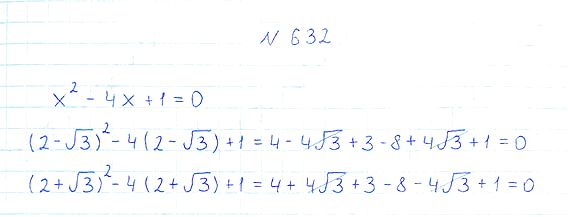 N 632
x² - 4x + 1 = 0
(2 - √3)² - 4(2 - √3) + 1 = 4 - 4√3 + 3 - 8 + 4√3 + 1 = 0
(2 + √3)² - 4(2 + √3) + 1 = 4 + 4√3 + 3 - 8 - 4√3 + 1 = 0